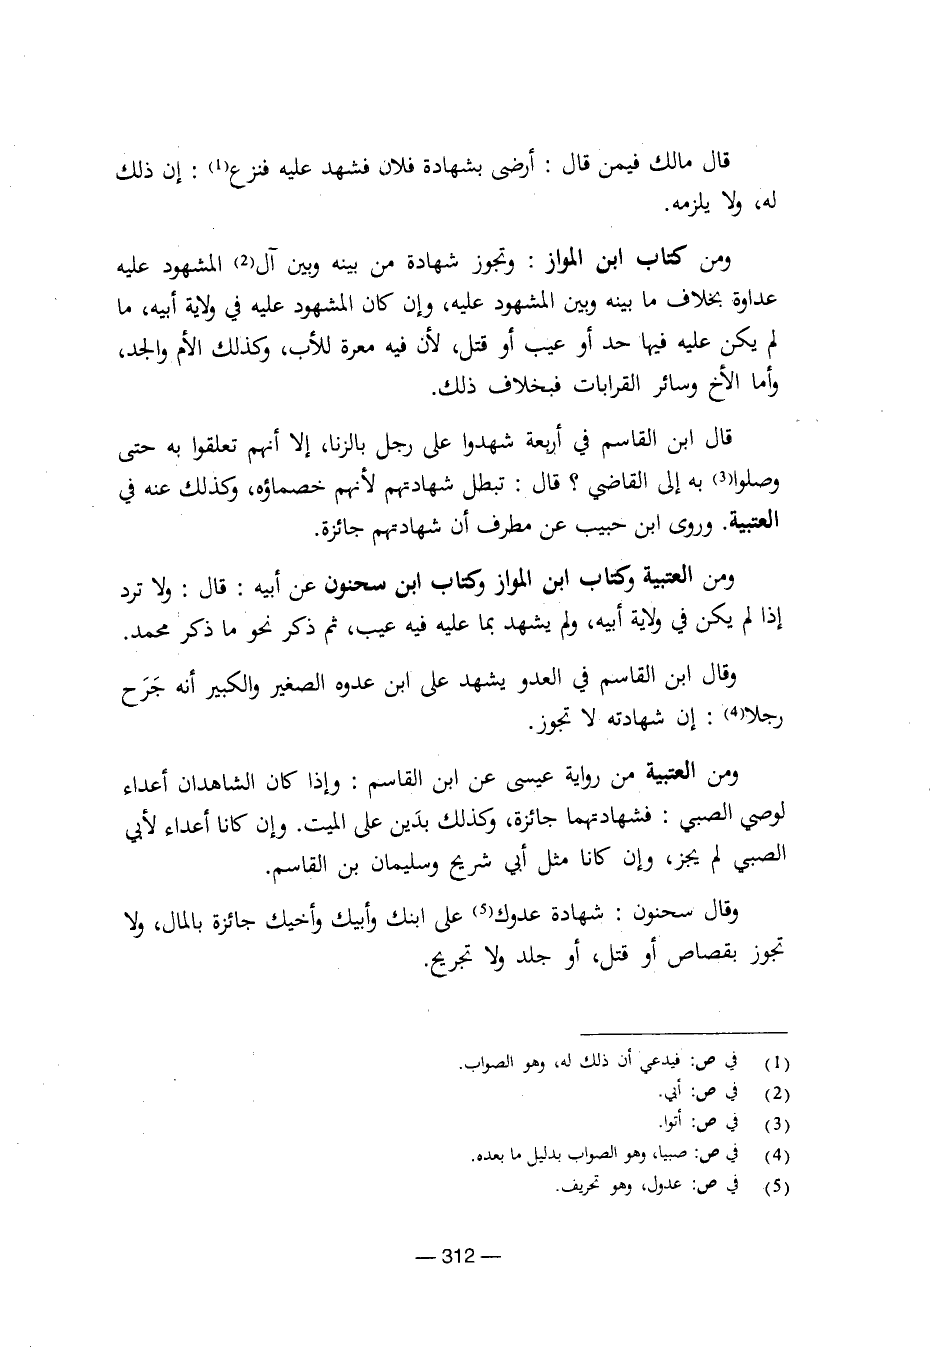 قال مالك فيمن قال : أرضى بشهادة فلان فشهد عليه فنزع(1) : إن ذلك
له، ولا يلزمه.
ومن كتاب ابن المواز : وتجوز شهادة من بينه وبين آل(2) المشهود عليه
عداوة بخلاف ما بينه وبين المشهود عليه، وإن كان المشهود عليه في ولاية أبيه، ما
لم يكن عليه فيها حد أو عيب أو قتل، لأن فيه معرة للأب، وكذلك الأم والجد،
وأما الأخ وسائر القرابات فبخلاف ذلك.
قال ابن القاسم في أربعة شهدوا على رجل بالزنا، إلا أنهم تعلقوا به حتى
وصلوا(3) به إلى القاضي ؟ قال : تبطل شهادتهم لأنهم خصماؤه، وكذلك عنه في
العتبية. وروى ابن حبيب عن مطرف أن شهادتهم جائزة.
ومن العتبية وكتاب ابن المواز وكتاب ابن سحنون عن أبيه : قال : ولا ترد
إذا لم يكن في ولاية أبيه، ولم يشهد بما عليه فيه عيب، ثم ذكر نحو ما ذكر محمد.
وقال ابن القاسم في العدو يشهد على ابن عدوه الصغير والكبير أنه جَرَح
رجلا(4) : إن شهادته لا تجوز.
ومن العتبية من رواية عيسى عن ابن القاسم : وإذا كان الشاهدان أعداء
لوصي الصبي : فشهادتهما جائزة، وكذلك بدَين على الميت. وإن كانا أعداء لأبي
الصبي لم يجز، وإن كانا مثل أبي شريح وسليمان بن القاسم.
وقال سحنون : شهادة عدوك(5) على ابنك وأبيك وأخيك جائزة بالمال، ولا
تجوز بقصاص أو قتل، أو جلد ولا تجريح.
(1) في ص: فيدعي أن ذلك له، وهو الصواب.
(2) في ص: أبي.
(3) في ص: أتوا.
(4) في ص: صبيا، وهو الصواب بدليل ما بعده.
(5) في ص: عدول، وهو تحريف.
— 312 —